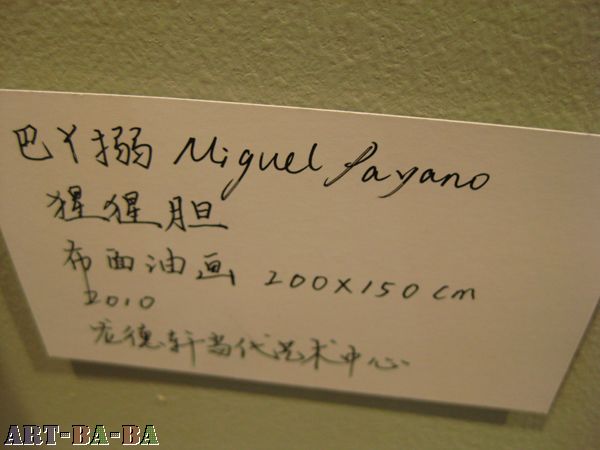 巴丫搦 Miguel Payano
猩猩胆
布面油画 200×150cm
2010
龙德轩当代艺术中心
ART-BA-BA